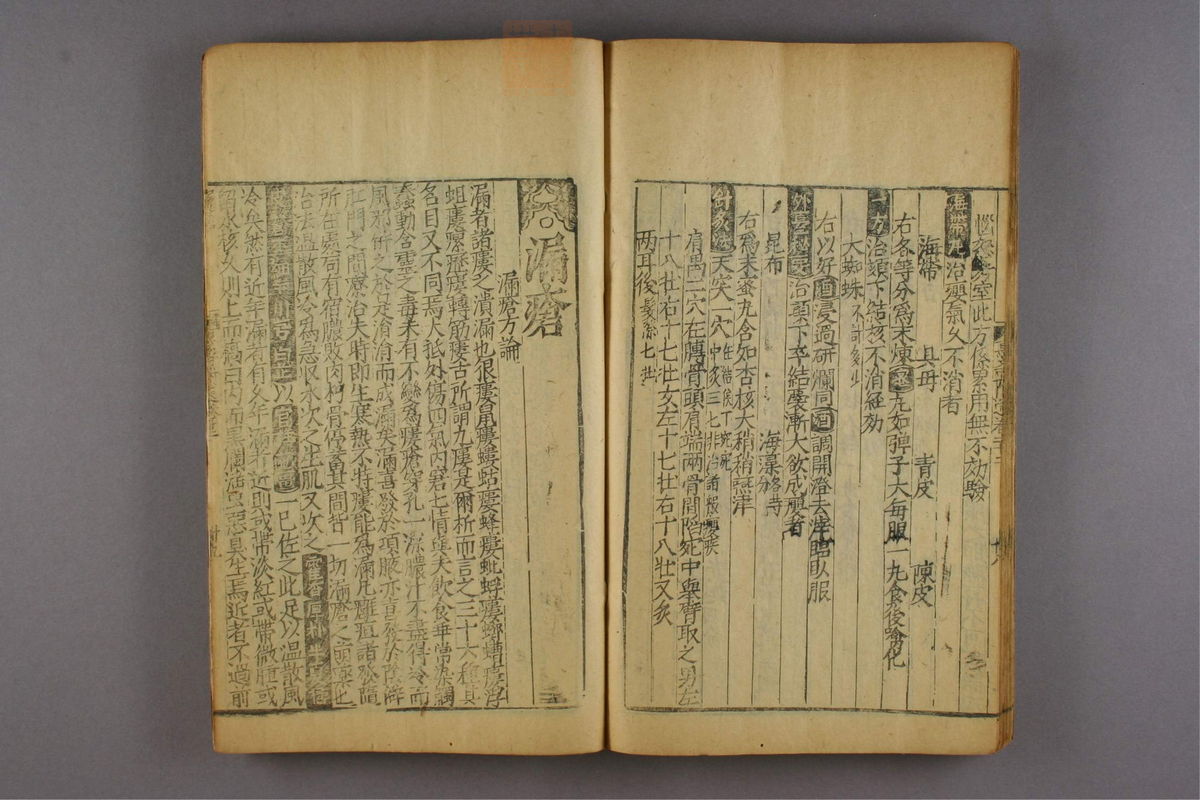 此方係累用無不効驗
海帶丸 治癭氣久不消者
海帶 貝母 青皮 陳皮
右各等分爲末煉蜜丸如彈子大每服一丸食後噙化
一方 治頭下結核不消經効
大蜘蛛 不計多少
右以好酒浸過研爛同酒調開澄去滓臨臥服
外臺秘要 治頸下卒結囊漸大欲成癭者
昆布 海藻 各等分
右爲末蜜丸含如杏核大稍稍嚥津
針灸法 天突一穴 在結喉下宛宛中灸三七壯治諸般癭疾
肩髃二穴在膊骨頭肩端兩骨間陷宛中舉臂取之男左
十八壯右十七壯女左十七壯右十八壯又灸
兩耳後髮際七壯
漏瘡
漏瘡方論
漏者諸瘻之潰漏也狼瘻鼠瘻螻蛄瘻蜂瘻蚍蜉瘻蠐螬瘻浮
蛆瘻瘰癧瘻轉筋瘻古所謂九瘻是爾析而言之三十六種其
名目又不同焉大抵外傷四氣內窘七情與夫飲食乖常染觸
蠢動含靈之毒未有不變爲瘻瘡穿孔一深膿汁不盡得冷而
風邪併之於是涓涓而成漏矣漏書發於項腋亦言發於陰僻
肛門之間療治失時即生寒熱不特瘻能爲漏凡癰疽諸發隨
所在處苟有宿膿敗肉朽骨停蓄其間皆一切漏瘡之病也
治法溫散風冷爲急收水次之生肌又次之
以 佐之此足以溫散風
冷矣然有近年漏有有久年漏者近則或帶淡紅或帶微腫或
者不過前